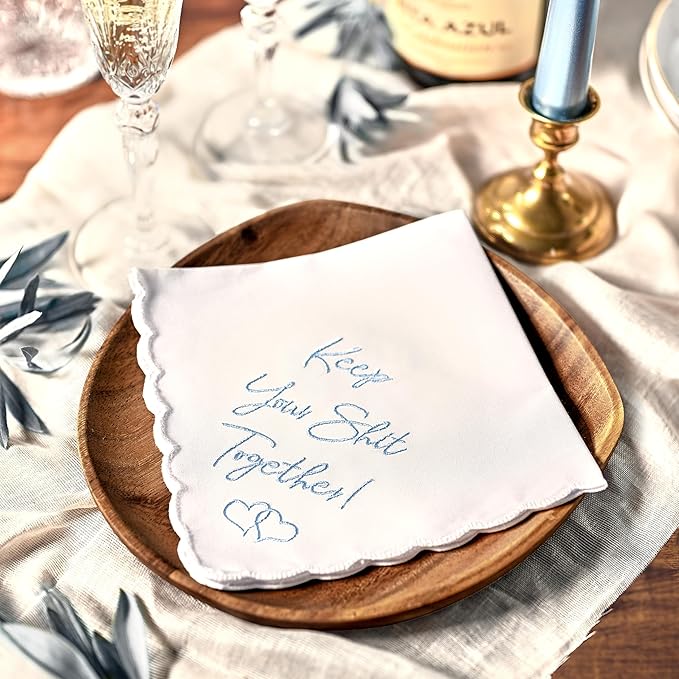 AZUL
Keep
Your Shit
Together!